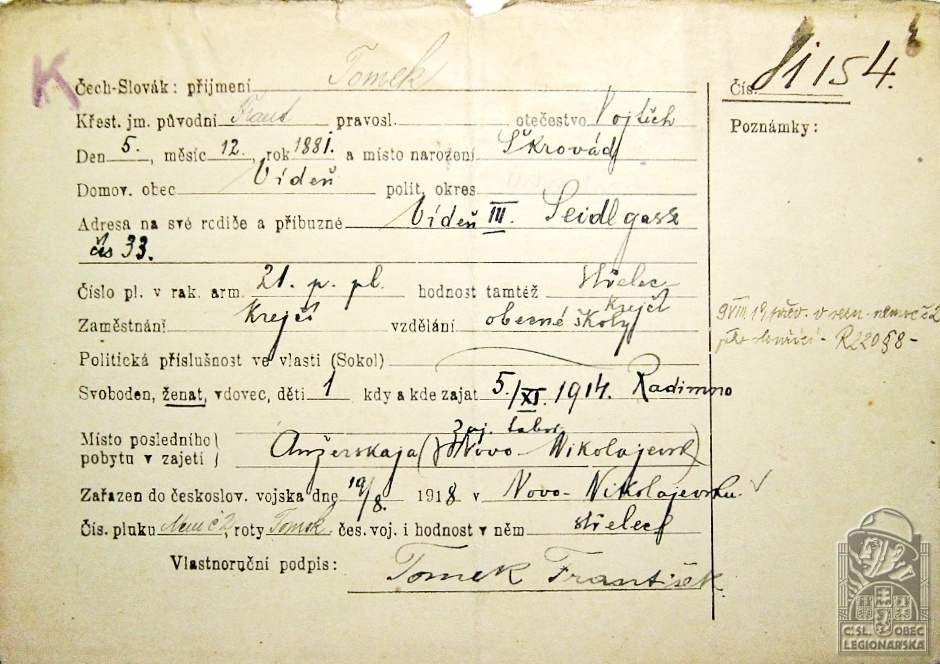 K
Čech-Slovák: příjmení Tomek
Čís. 154.
Křest. jm. původní Frant pravosl. otečestvo Vojtěch
Poznámky:
Den 5., měsíc 12., rok 1881. a místo narození Škrovád
Domov. obec Vídeň polit. okres
Adresa na své rodiče a příbuzné Vídeň III. Seidlgasse
čís 33.
Číslo pl. v rak. arm. 21. p. pl. hodnost tamtéž střelec
Zaměstnání Krejčí vzdělání obecné školy krejčí
Politická příslušnost ve vlasti (Sokol)
Svoboden, ženat, vdovec, děti 1 kdy a kde zajat 5./XI. 1914. Radimno
Místo posledního pobytu v zajetí Anžerskaja (Novo-Nikolajevsk) zaj. tabor
Zařazen do českoslov. vojska dne 19/8. 1918 v Novo-Nikolajevsku.
Čís. pluku, roty čes. voj. i hodnost v něm střelec
Vlastnoruční podpis: Tomek František
Č.SL. OBEC
LEGIONÁŘSKÁ